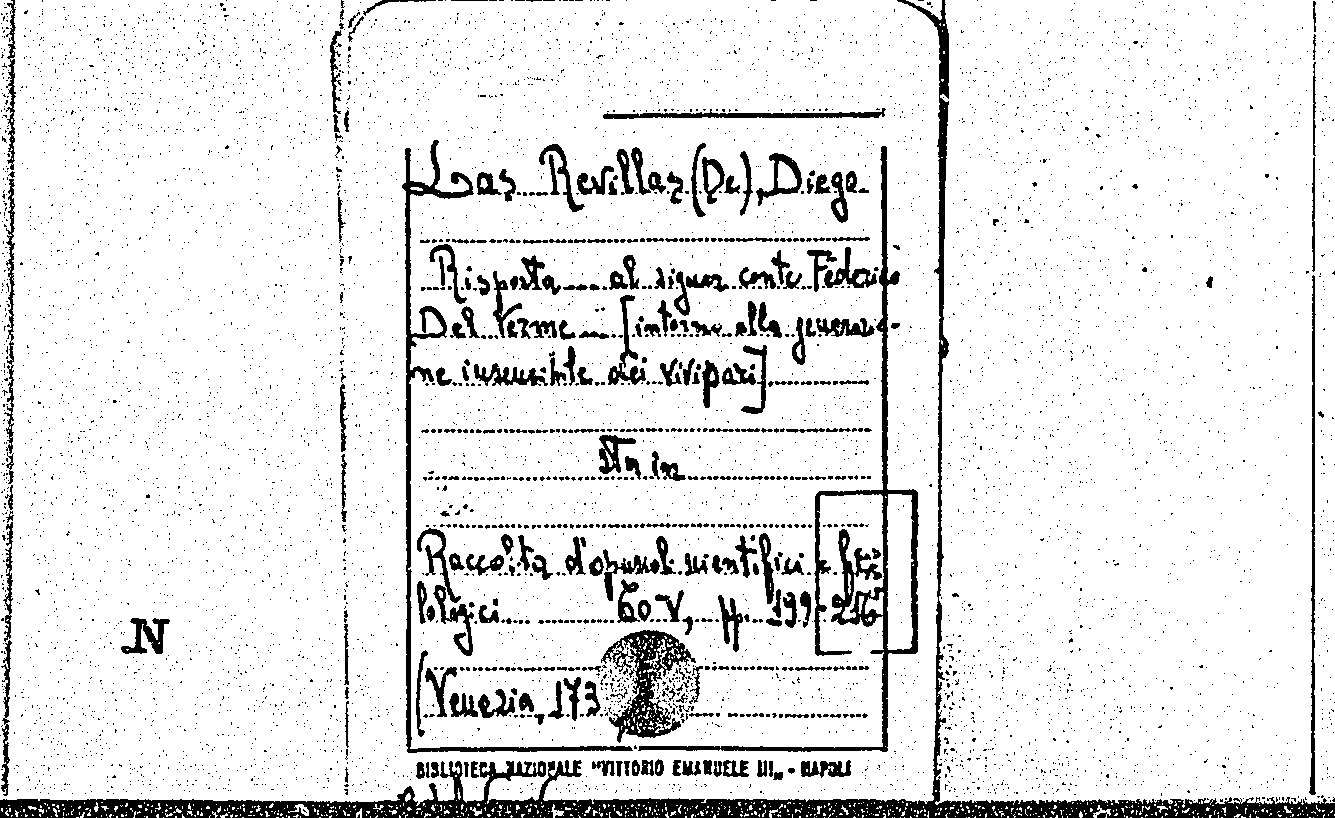 Las Revillas (De), Diego
Risposta .... al signor conte Federico
Del Verme ... [intorno alla generazio-
ne insensibile dei vivipari]
Sta in
Raccolta d'opuscoli scientifici e
lologici.... To V, pp. 199-216
N
(Venezia, 173
BIBLIOTECA NAZIONALE "VITTORIO EMANUELE III„ - NAPOLI